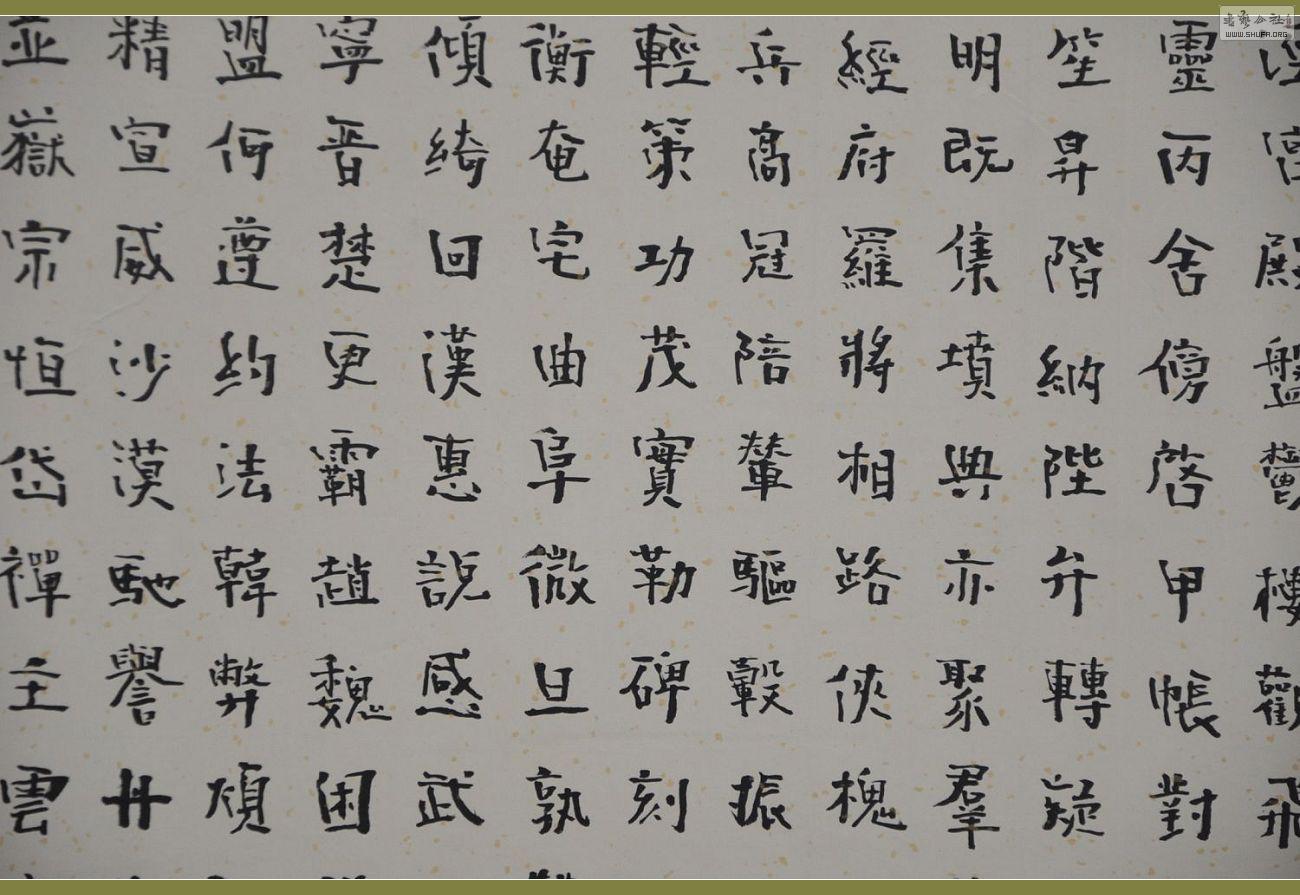 宮殿盤鬱樓觀飛
靈丙舍傍啓甲帳對
笙昇階納陛弁轉疑
明既集墳典亦聚群
經府羅將相路俠槐
兵高冠陪輦驅轂振
輕策功茂實勒碑刻
衡奄宅曲阜微旦孰
傾綺回漢惠說感武
寧晉楚更霸趙魏困
盟何遵約法韓弊煩
精宣威沙漠馳譽丹
並嶽宗恒岱禪主雲
WWW.SHUFA.ORG